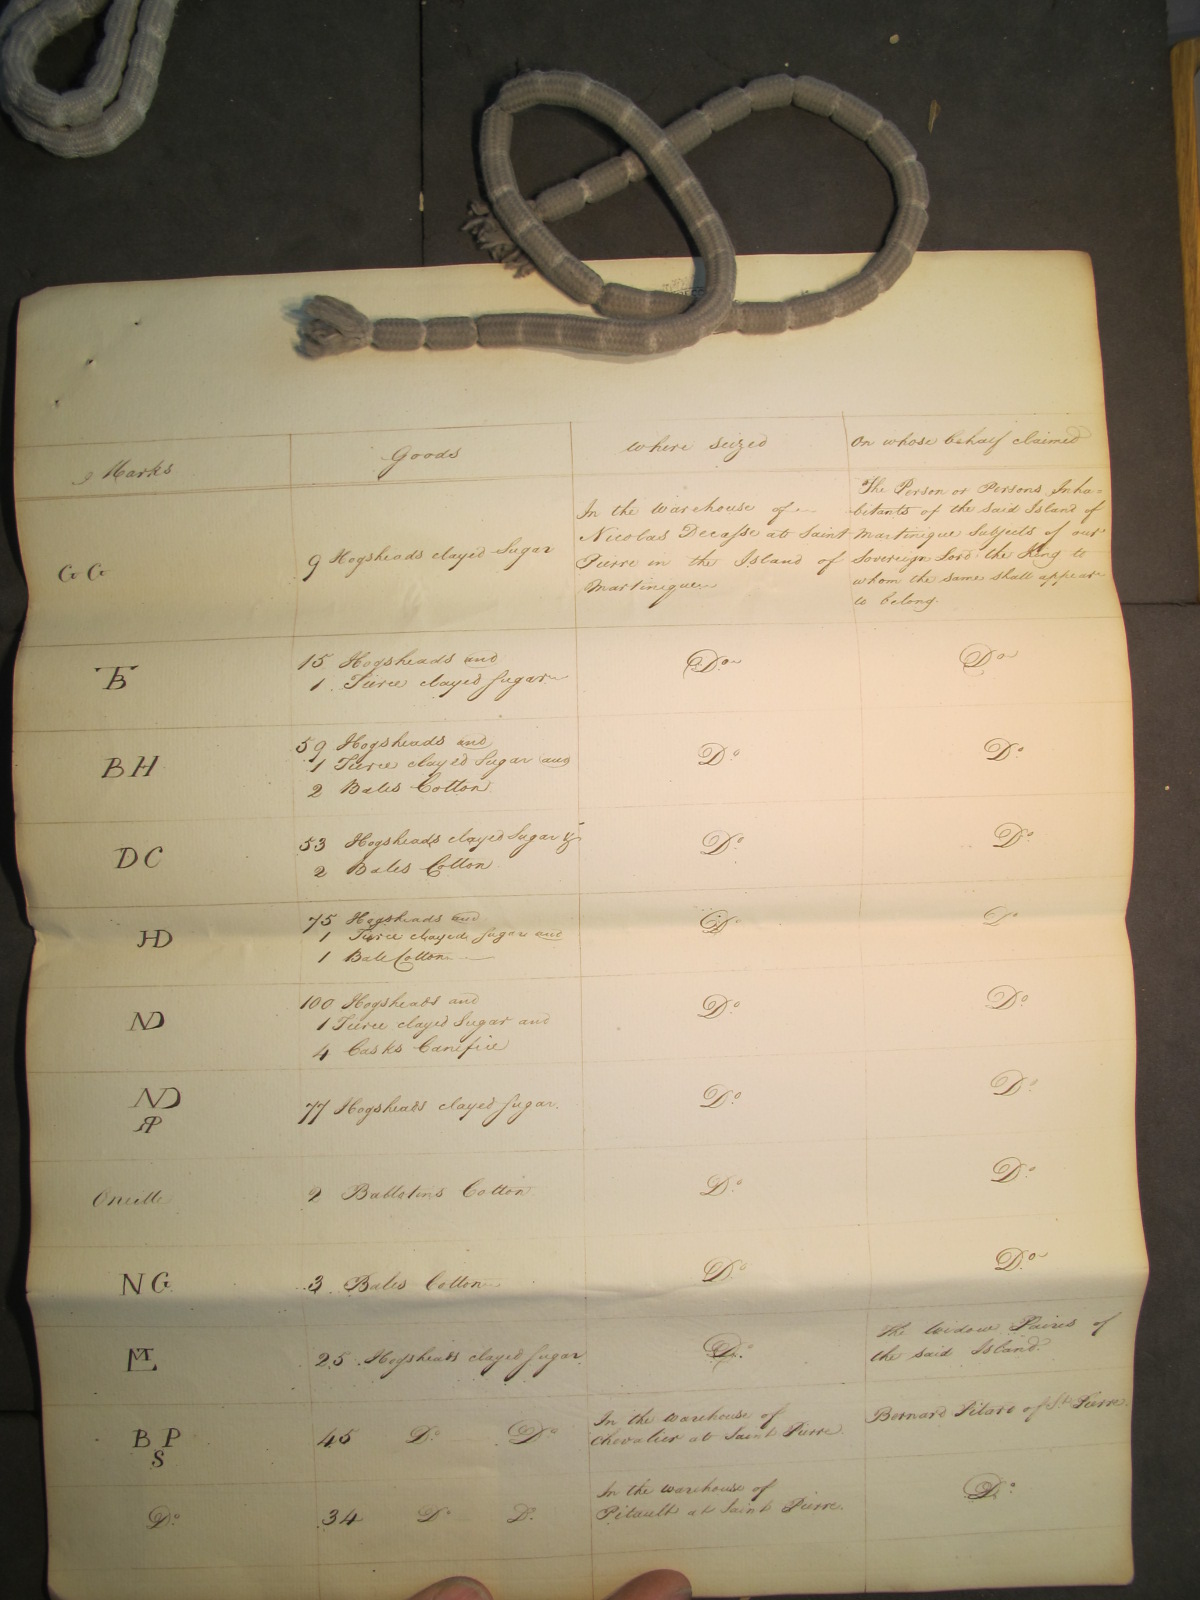 Marks
Goods
Where seized
On whose behalf claimed
G G
9 Hogsheads clayed Sugar
In the warehouse of
Nicolas Decasse at Saint
Pierre in the Island of
Martinique
The Person or Persons Inha=
bitants of the said Island of
Martinique Subjects of our
Sovereign Lord the King to
whom the same shall appear
to belong.
TB
15 Hogsheads and
1 Tierce clayed Sugar
Do
Do
BH
59 Hogsheads and
1 Tierce clayed Sugar and
2 Bales Cotton
Do
Do
DC
53 Hogsheads clayed Sugar &
2 Bales Cotton
Do
Do
HD
75 Hogsheads and
1 Tierce clayed Sugar and
1 Bale Cotton
Do
Do
ND
100 Hogsheads and
1 Tierce clayed Sugar and
4 Casks Canefice
Do
Do
ND
RP
77 Hogsheads clayed Sugar.
Do
Do
Oneille
2 Ballotins Cotton
Do
Do
NG
3 Bales Cotton
Do
Do
25 Hogsheads clayed Sugar
Do
The Widow Paires of
the said Island.
B P
S
45 Do Do
In the warehouse of
Chevalier at Saint Pierre
Bernard Pitard of St. Pierre.
Do
34 Do Do
In the warehouse of
Pitault at Saint Pierre.
Do